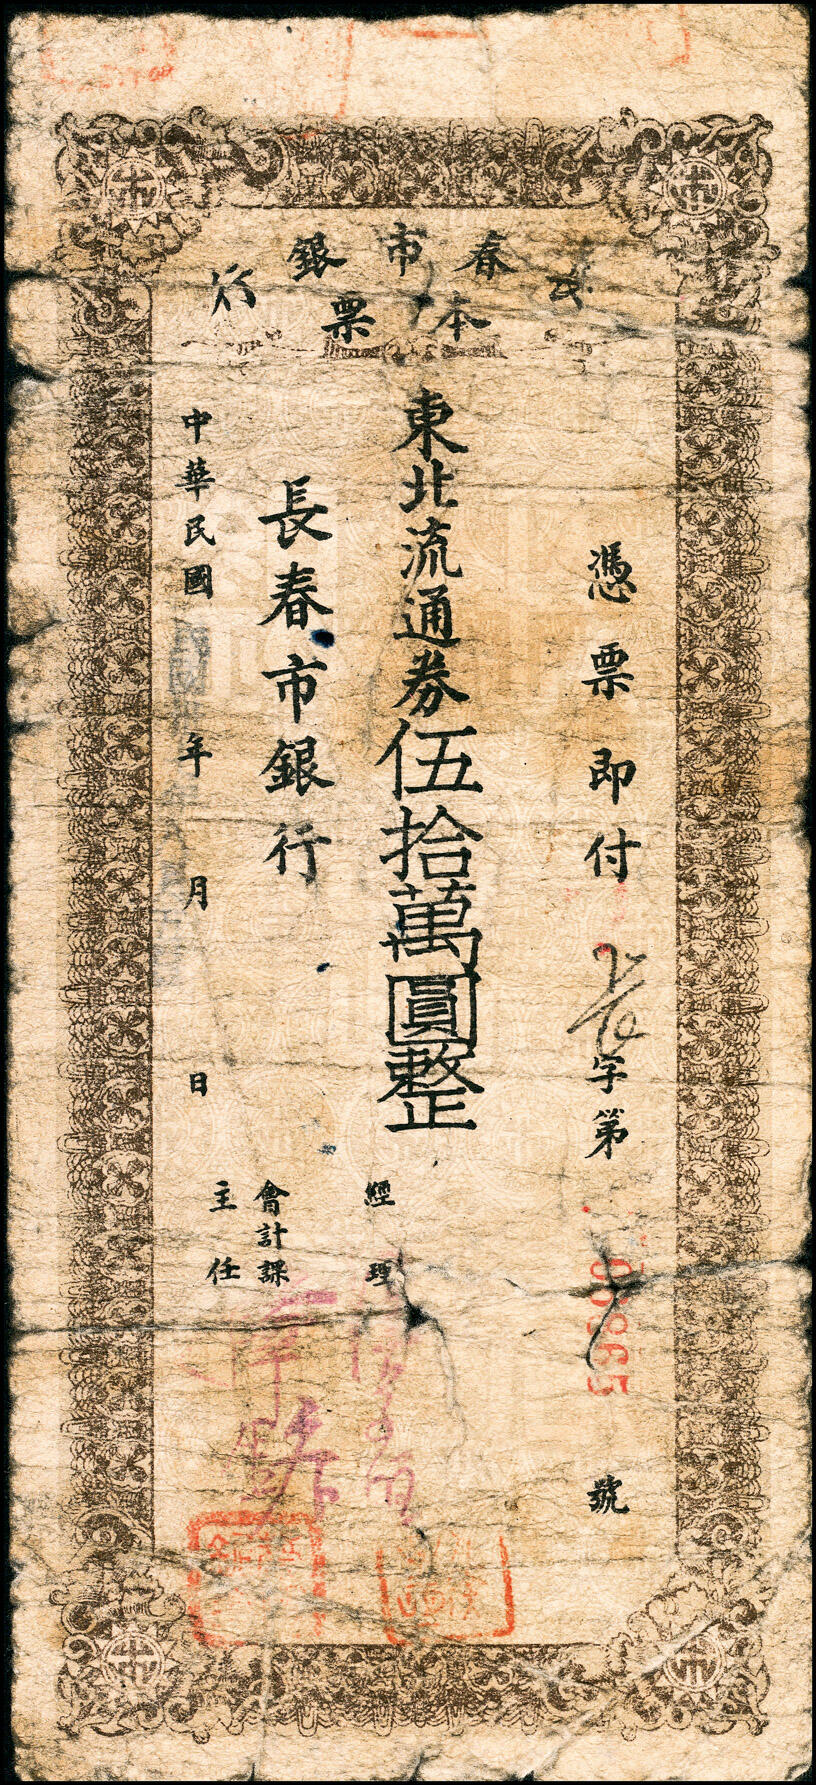 長春市銀行
本票
憑票即付
長字第 00365 號
東北流通券伍拾萬圓整
長春市銀行
中華民國 年 月 日
經理
會計課
主任